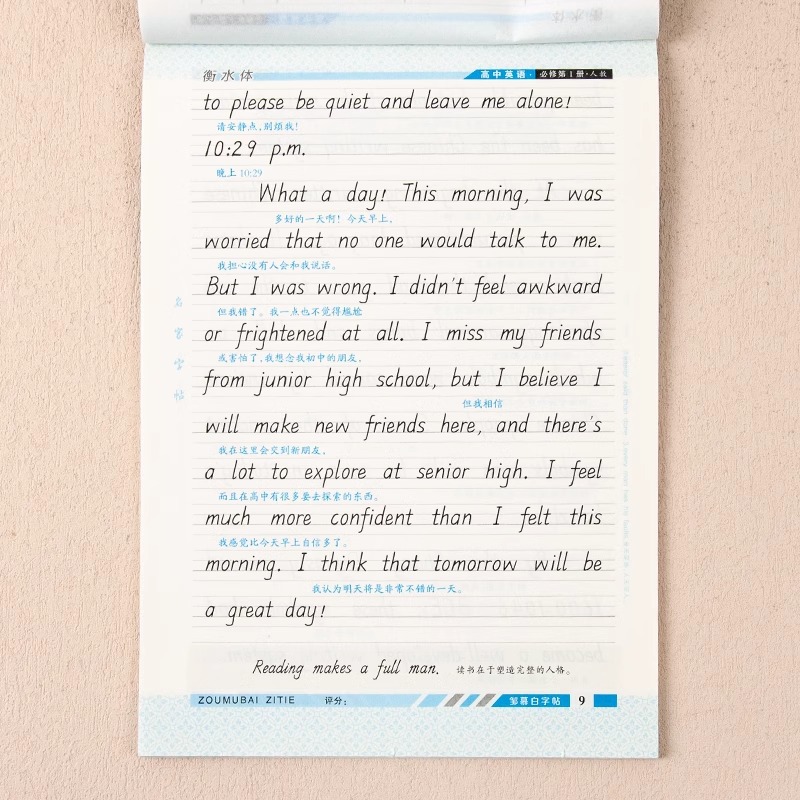 衡水体
高中英语·必修第1册·人教
to please be quiet and leave me alone!
请安静点,别烦我!
10:29 p.m.
晚上 10:29
What a day! This morning, I was
多好的一天啊! 今天早上,
worried that no one would talk to me.
我担心没有人会和我说话。
But I was wrong. I didn't feel awkward
但我错了。我一点也不觉得尴尬
or frightened at all. I miss my friends
或害怕了,我想念我初中的朋友,
from junior high school, but I believe I
但我相信
will make new friends here, and there's
我在这里会交到新朋友,
a lot to explore at senior high. I feel
而且在高中有很多要去探索的东西。
much more confident than I felt this
我感觉比今天早上自信多了。
morning. I think that tomorrow will be
我认为明天将是非常不错的一天。
a great day!
Reading makes a full man. 读书在于塑造完整的人格。
名家字帖
ZOUMUBAI ZITIE 评分:
邹慕白字帖 9